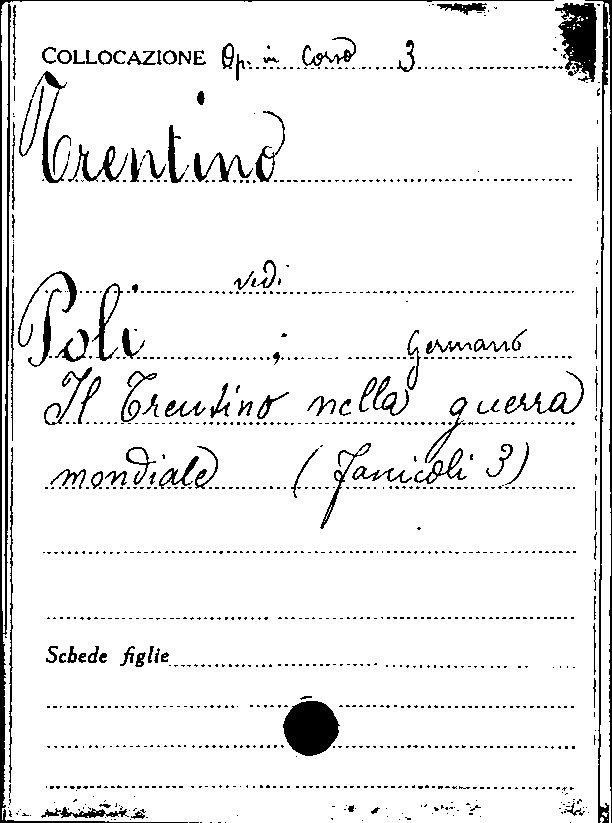 COLLOCAZIONE Op. in Corso 3
Trentino
vedi
Poli ; Germano
Il Trentino nella guerra
mondiale (Fanicoli 3)
Schede figlie